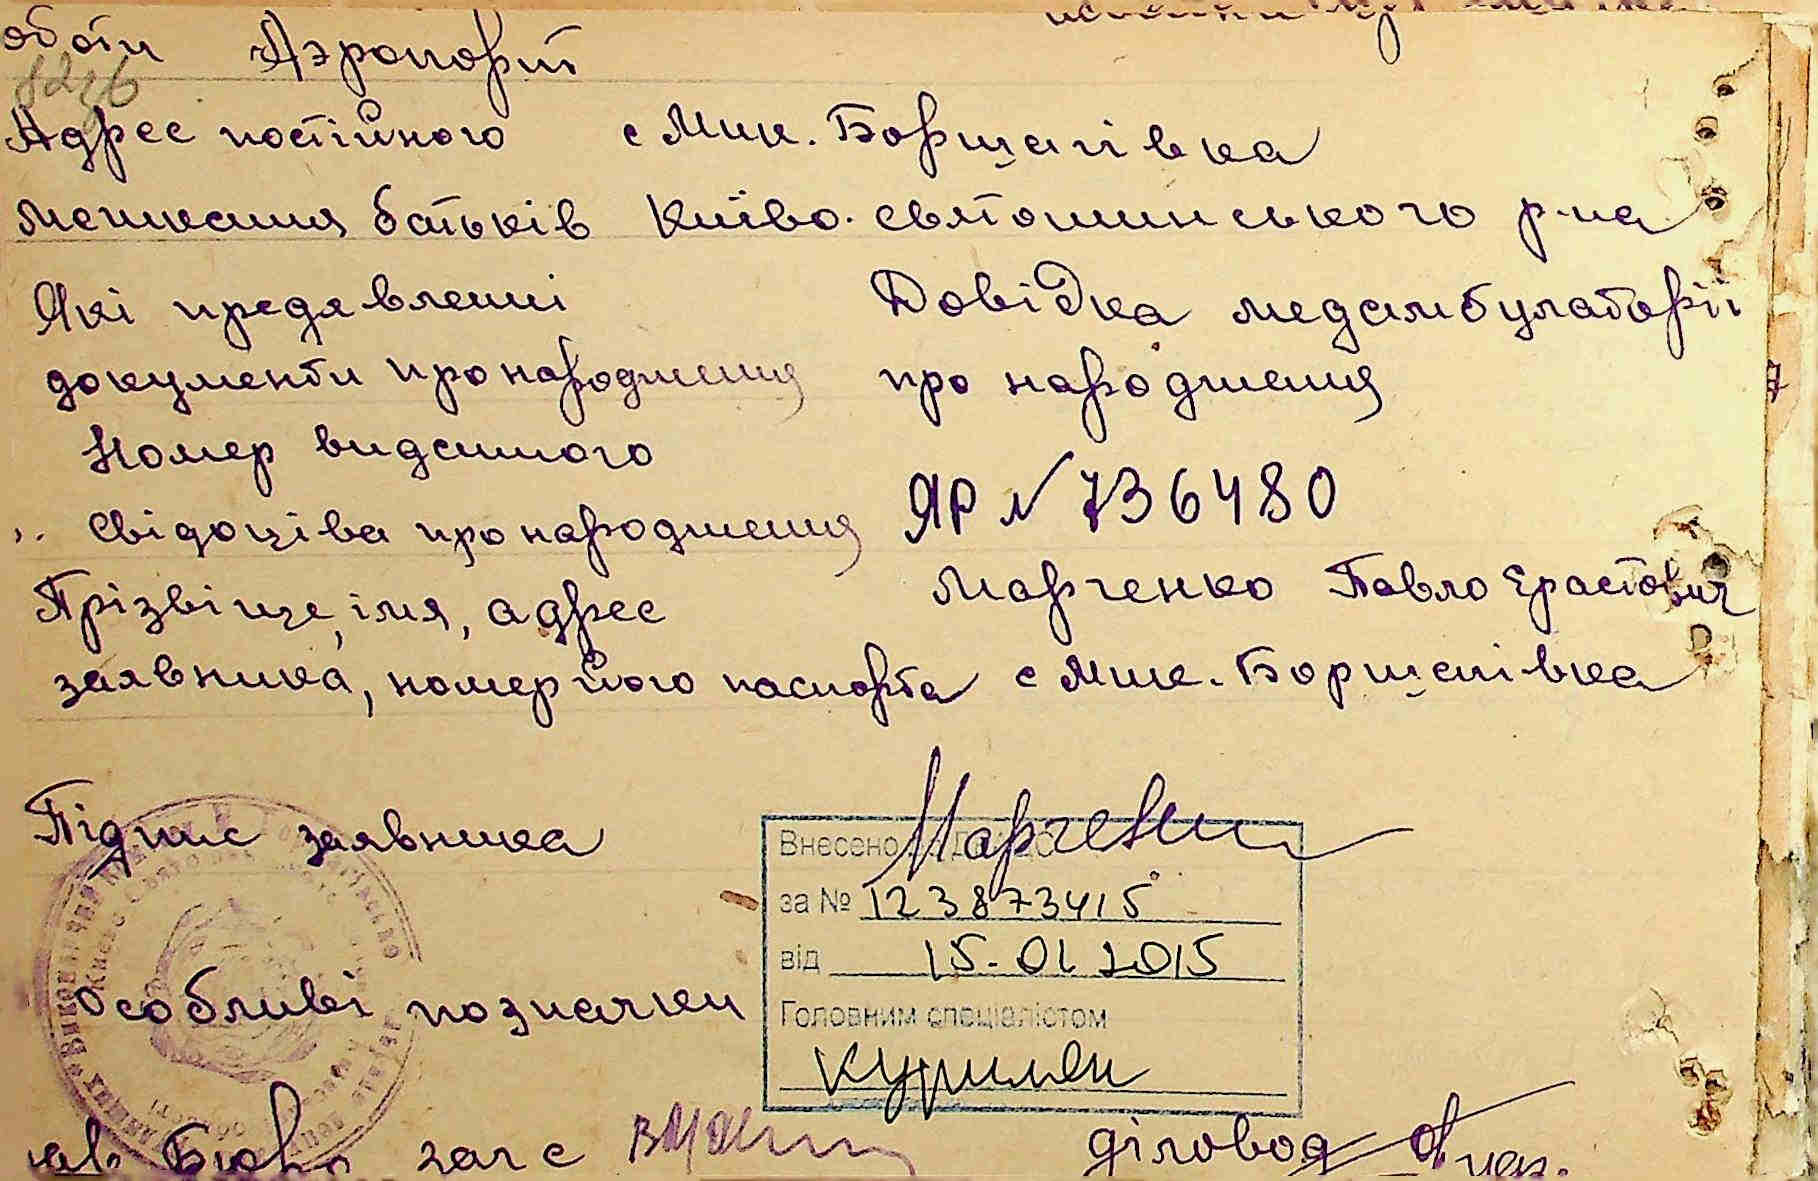 оботи Аэропорт
Адрес постійного с Мик. Борщагівка
мешкання батьків Київо-святошинського р-на
Які предявленні Довідка медамбулаторії
документи про народження про народження
Номер виданного
Свідоцтва про народження ЯР № 736480
Прізвіще, імя, адрес Марченко Павло Ерастович
заявника, номер його паспорта с Мик. Борщагівка
Підпис заявника Марченко
Внесено до ДРАЦС
за № 123873415
від 15.01.2015
Особливі позначки
Головним спеціалістом
Зав. Бюро загс діловод